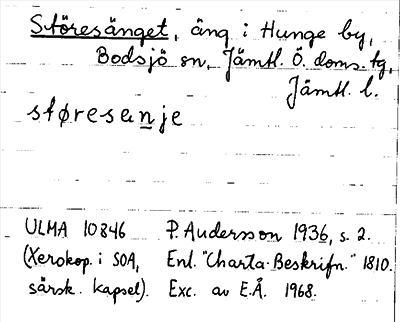 Störesänget, äng i Hunge by,
Bodsjö sn, Jämtl. Ö. doms. tg,
Jämtl. l.
støresenje
ULMA 10846 P. Andersson 1936, s. 2.
(Xerokop. i SOA, Enl. "Charta-Beskrifn." 1810.
särsk. kapsel). Exc. av E.Å. 1968.